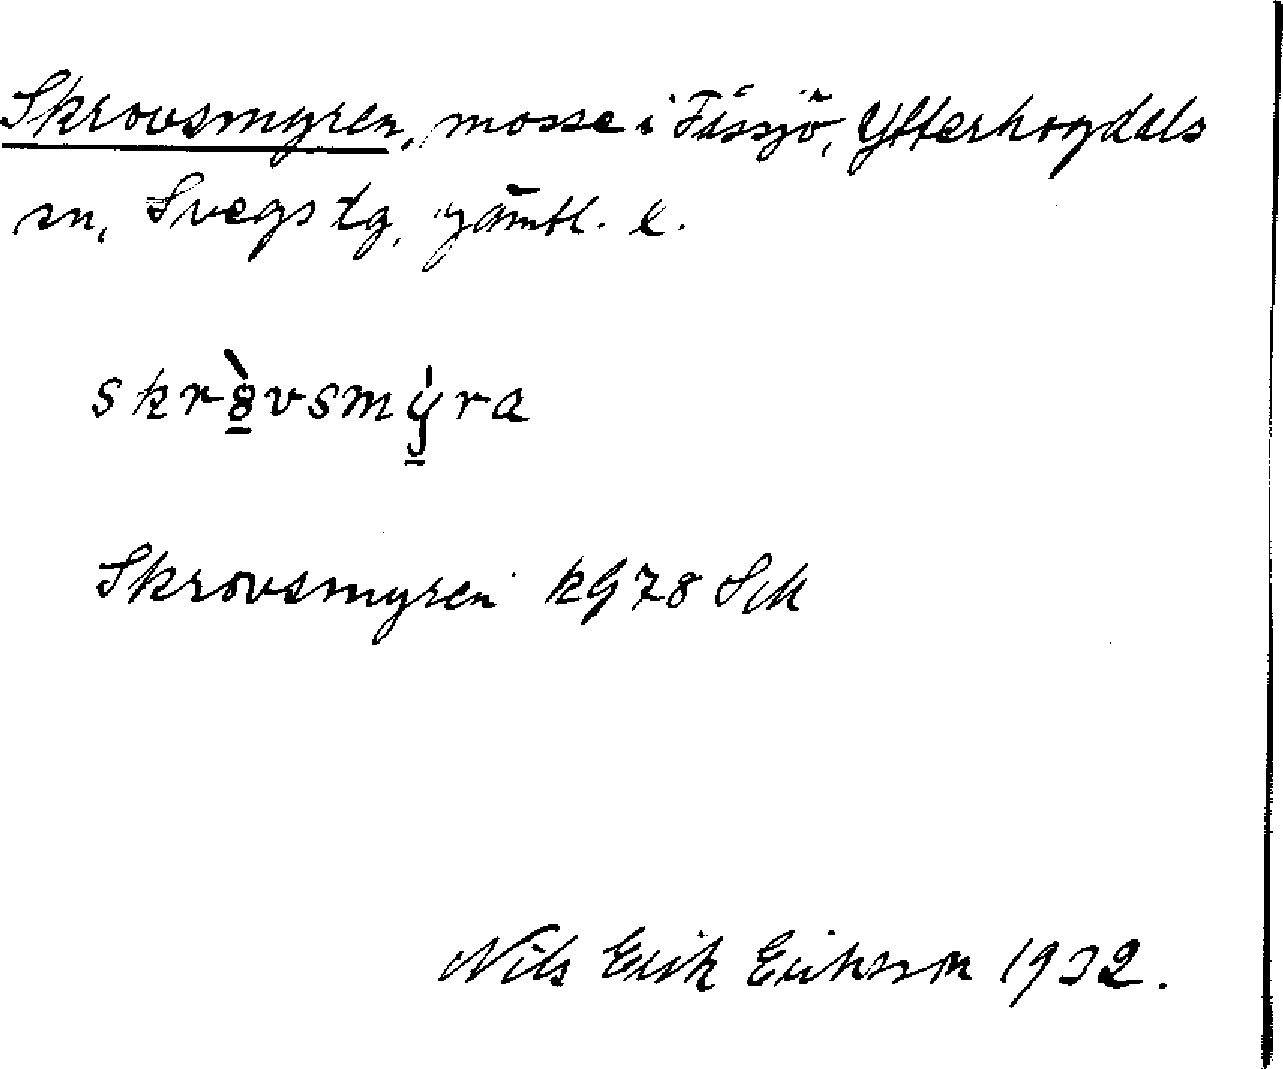 Skrovsmyren, mosse i Fåssjö, Ytterhogdals
sn, Svegs tg, Jämtl. l.
skr8̠̀vsmẏ̳ra
Skrovsmyren kg 78 Sck
Nils Erik Eriksson 1932.